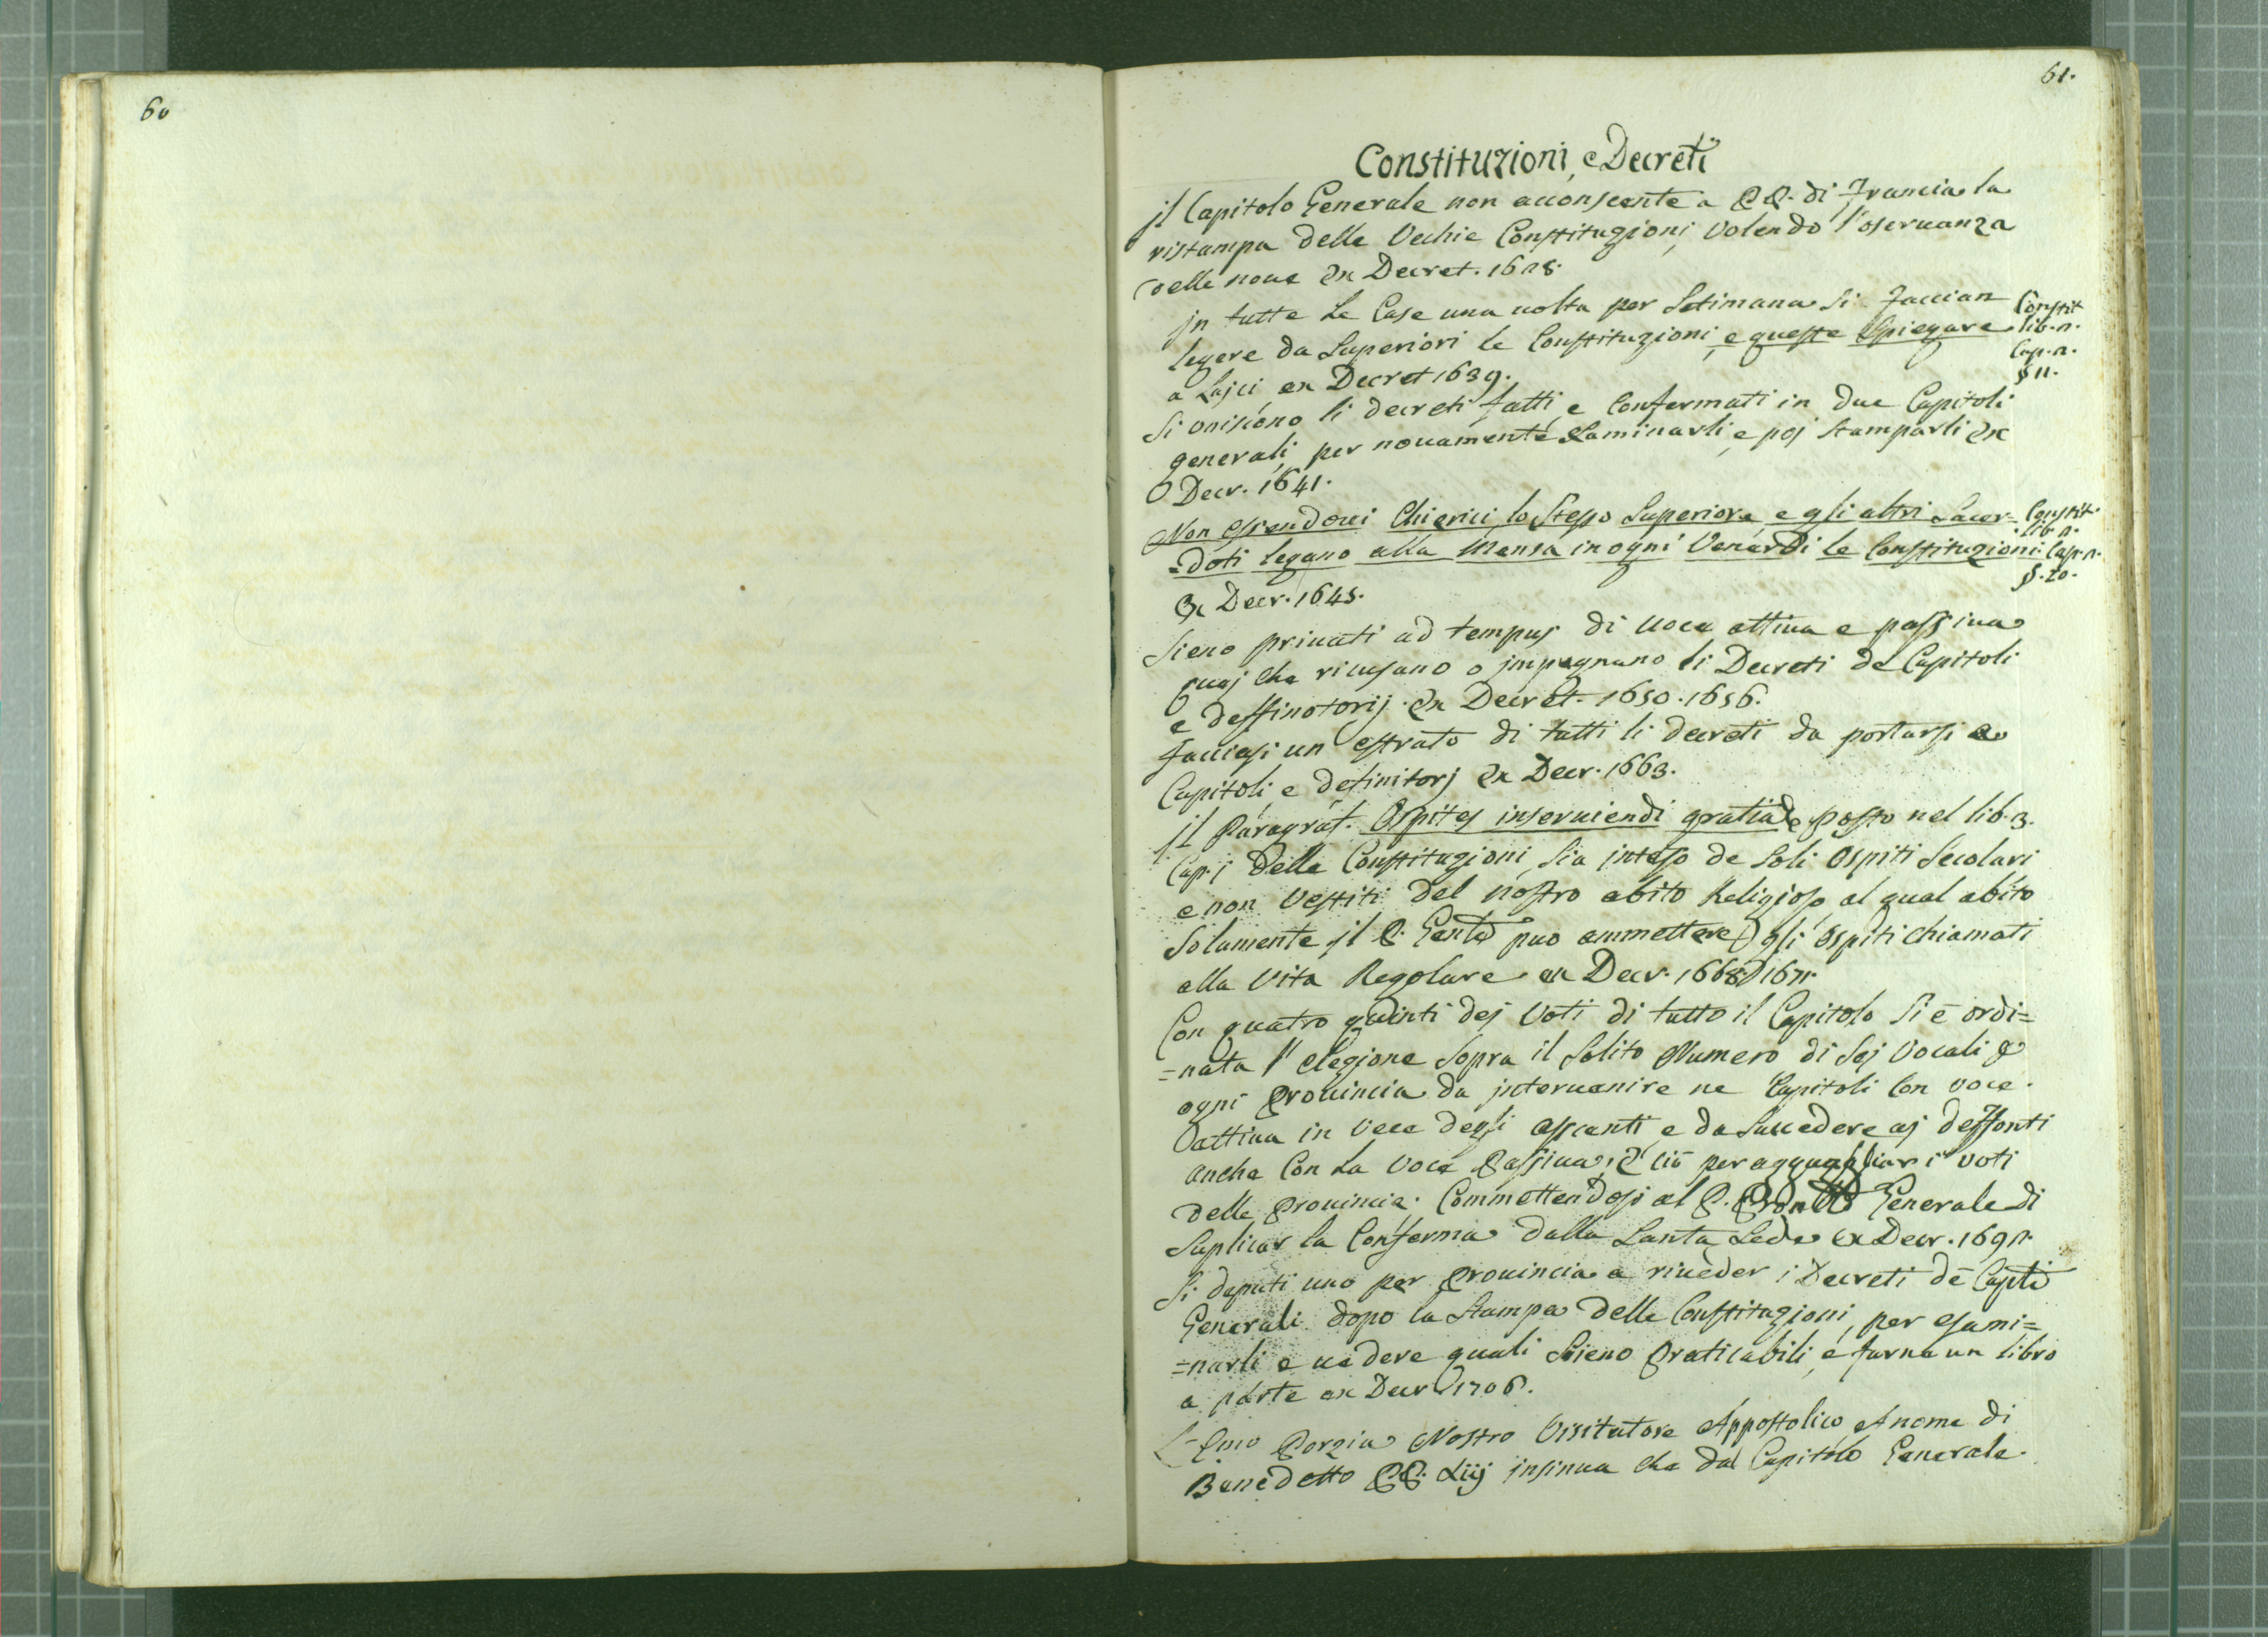 60
61.
Constituzioni, e Decreti
jl Capitolo Generale non acconsente a PP. di Francia la
ristampa delle Vechie Constituzioni, volendo l'oseruanza
delle noue Ex Decret. 1628.
jn tutte le Case una uolta per Setimana si faccian
legere da Superiori le Constituzioni, e queste Spiegare
a Lajci, ex Decret 1639.
Constit
lib. 2.
Cap. 2.
§ 11.
Si uniscono li decreti fatti, e Confermati in due Capitoli
generali, per nouamente esaminarli, e poj stamparli Ex
Decr. 1641.
Non essendoui Chierici, lo Stesso Superiore, e gli altri Sacer-
=doti legano alla Mensa in ogni Venerdi le Constituzioni
Ex Decr. 1645.
Constit.
lib. 2.
Cap. 2.
§. 20.
Sieno priuati ad tempus di uoce attiua e passiua
quej che ricusano o jmpugnano li Decreti de Capitoli
e deffinotorij. Ex Decret. 1650. 1656.
facciasi un estrato di tutti li decreti da portarsi a
Capitoli e definitorj Ex Decr. 1663.
jl Paragraf. Ospites inseruiendi gratia posto nel lib. 3.
Cap. j delle Constituzioni, sia jnteso de soli Ospiti Secolari
e non Vestiti del nostro abito Religioso al qual abito
Solamente jl P. Genle puo ammettere gli Ospiti chiamati
alla Vita Regolare ex Decr. 1668. 1671.
Con quatro quinti dej Voti di tutto il Capitolo si è ordi=
=nata l'elezione sopra il solito Numero di sej Vocali
ogni Prouincia da jnteruenire ne Capitoli Con voce
attiua in vece degli assenti, e da succedere aj deffonti
anche Con la Voce Passiua, E ciò per agguagliar i voti
delle Prouincie. Commettendosi al P. Generale di
Suplicar la Conferma dalla Santa Sede ex Decr. 1692.
Si deputi uno per Prouincia a riueder i Decreti de Capli
Generali dopo la Stampa delle Constituzioni, per esami=
=narli e uedere quali sieno Praticabili, e farne un libro
a parte ex Decr 1706.
L'Emo Porzia Nostro Visitatore Appostolico A nome di
Benedetto PP. Xiij jnsinua che dal Capitolo Generale